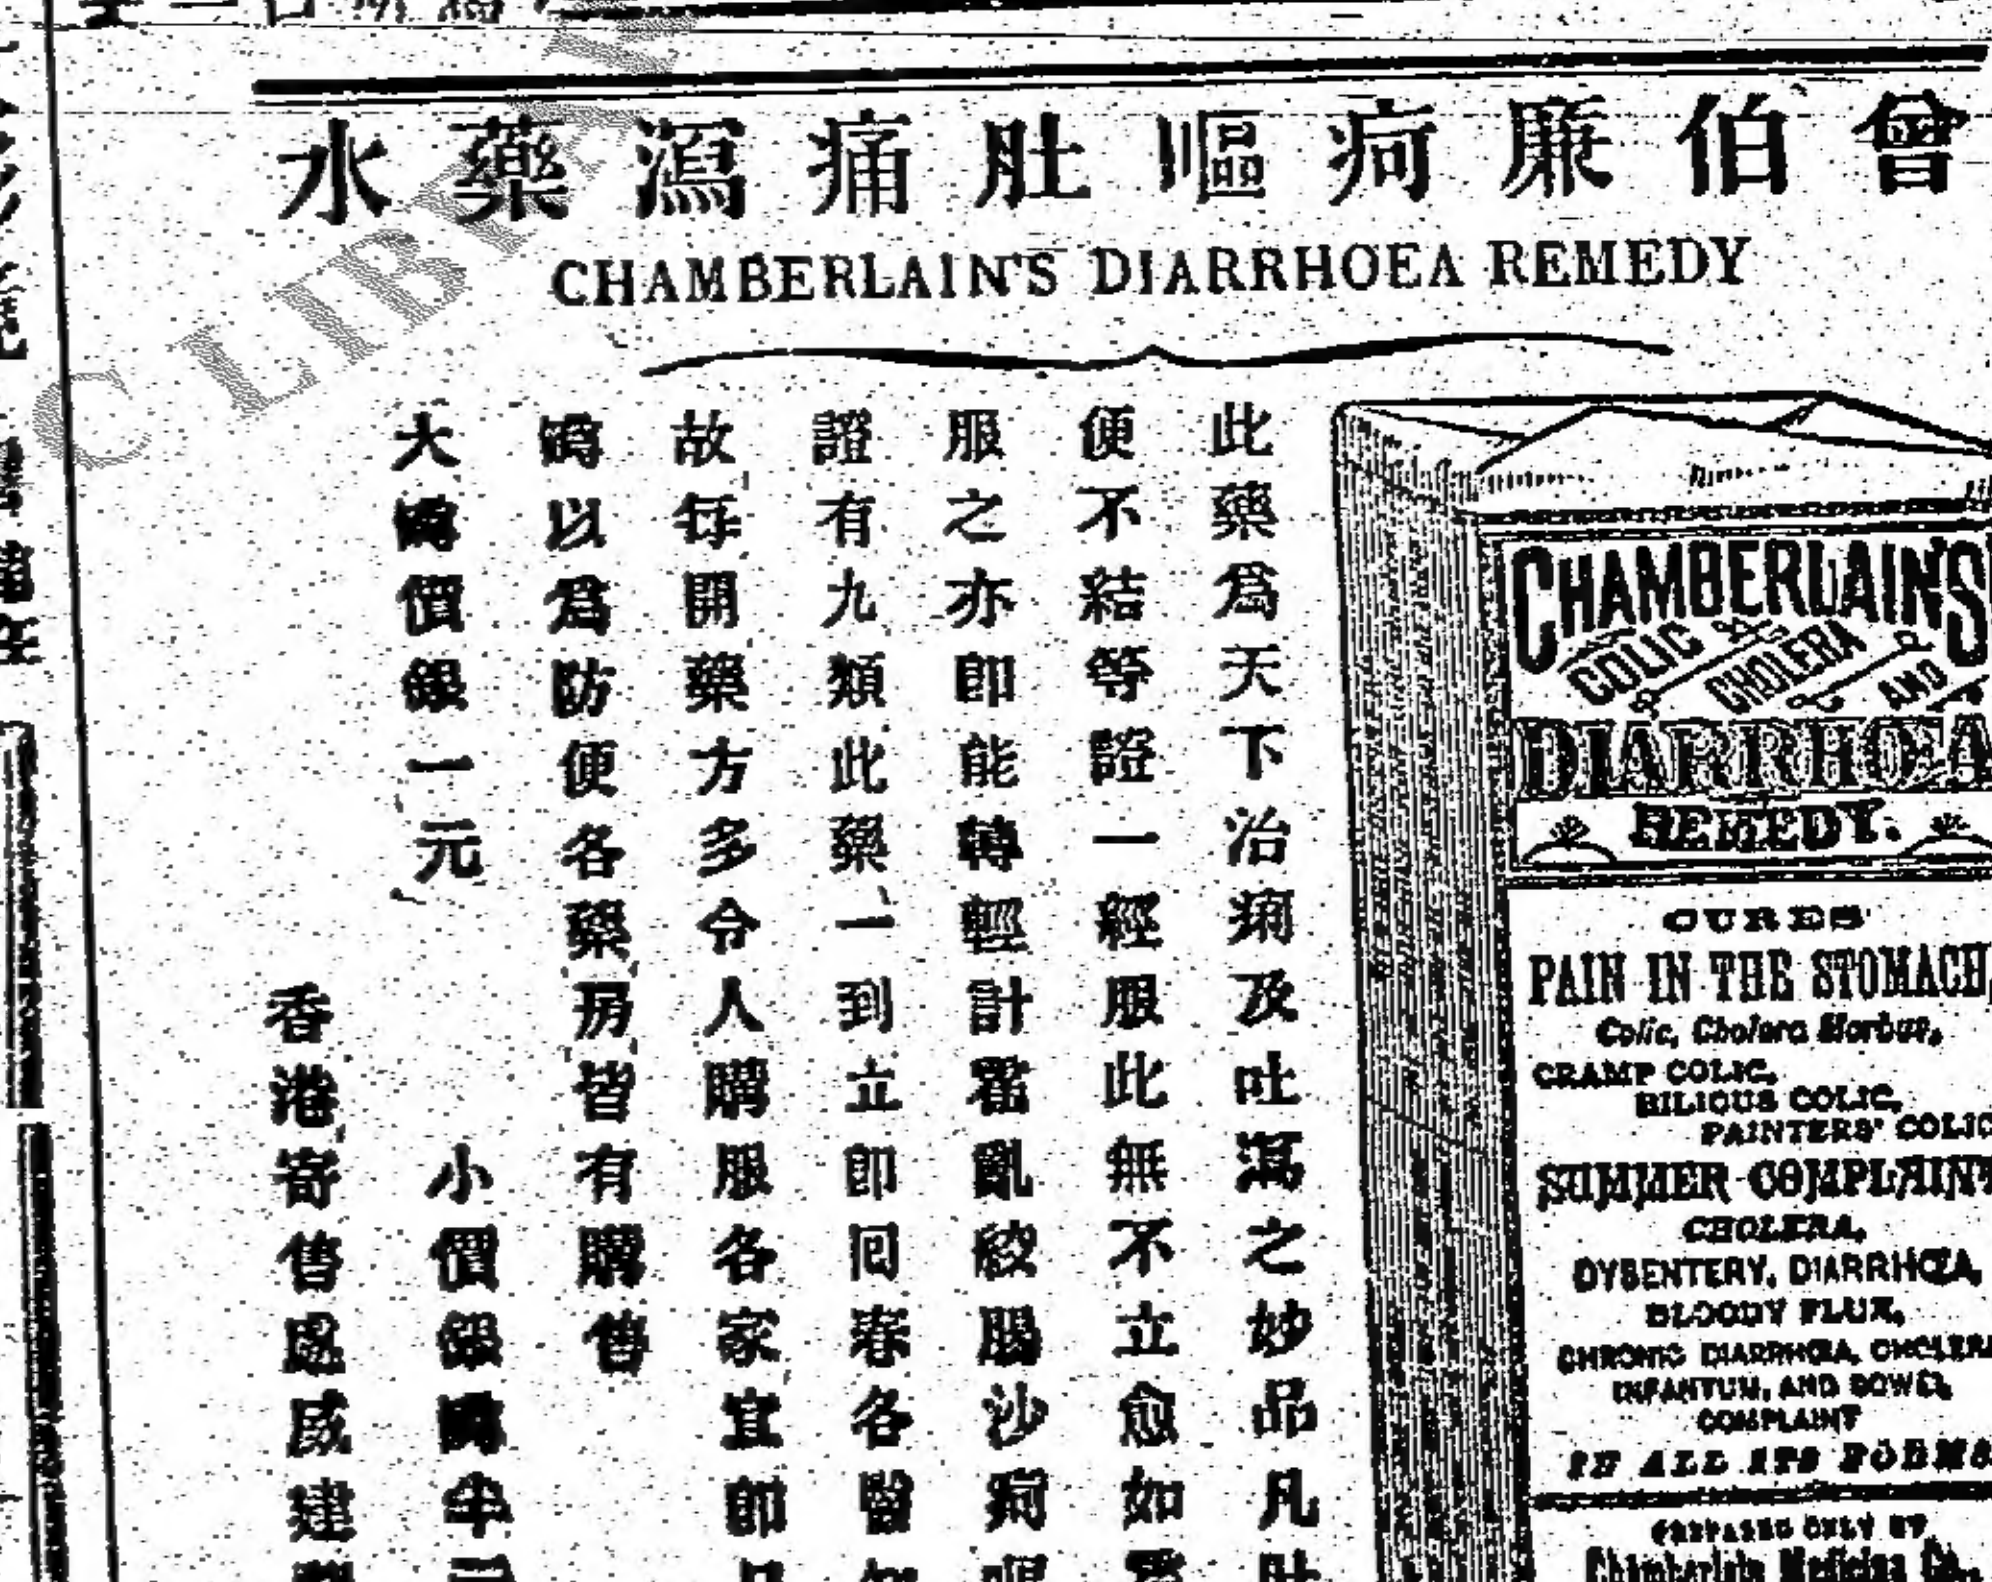 曾伯廉疴嘔肚痛瀉藥水
CHAMBERLAIN'S DIARRHOEA REMEDY
此藥為天下治痢及吐瀉之妙品凡肚
便不結等證一經服此無不立愈如
服之亦即能轉輕計霍亂絞腸沙疴嘔
證有九類此藥一到立即囘春各醫
故每開藥方多令人購服各家宜卽
以為防便各藥房皆有購售
大 價銀一元 小 價銀 半元
香港寄售 威建
CHAMBERLAIN'S
COLIC CHOLERA AND
DIARRHŒA
REMEDY.
CURES
PAIN IN THE STOMACH,
Colic, Cholera Morbus,
CRAMP COLIC,
BILIOUS COLIC,
PAINTERS' COLIC
SUMMER COMPLAINT
CHOLERA,
DYSENTERY, DIARRHŒA,
BLOODY FLUX,
CHRONIC DIARRHŒA, CHOLERA
INFANTUM, AND BOWEL
COMPLAINT
IN ALL ITS FORMS
PREPARED ONLY BY
Chamberlain Medicine Co.,
C LIBRA